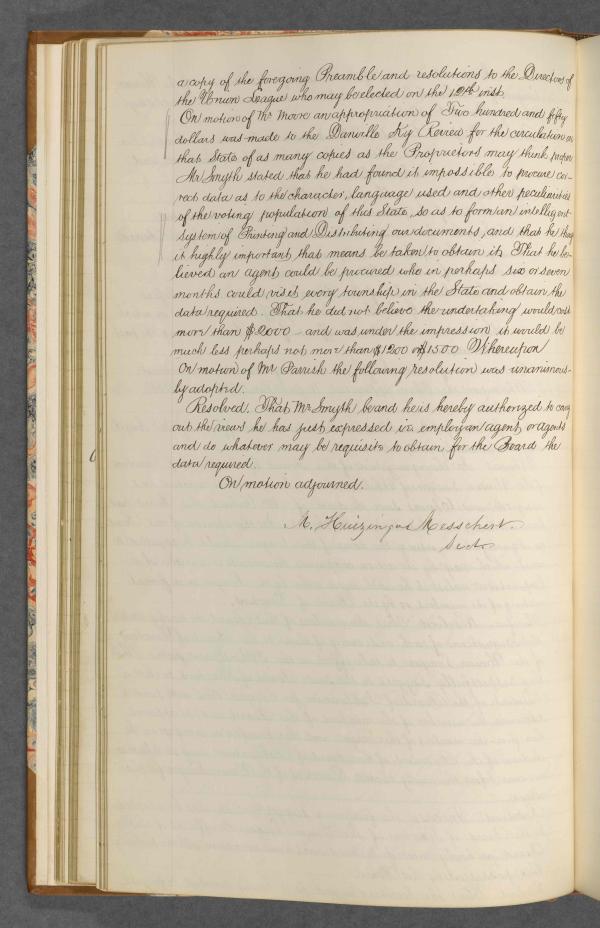 a copy of the foregoing Preamble and resolutions to the Directors of
the Union League who may be elected on the 12th inst
On motion of Mr Moore an appropriation of Two hundred and fifty
dollars was made to the Danville Ky Review for the circulation in
that State of as many copies as the Proprietors may think proper
Mr Smyth stated that he had found it impossible to procure cor-
rect data as to the character, language used and other peculiarities
of the voting population of this State, so as to form an intelligent
system of Printing and Distributing our documents, and that he thought
it highly important that means be taken to obtain it. That he be-
lieved an agent could be procured who in perhaps six or seven
months could visit every township in the State and obtain the
data required. That he did not believe the undertaking would cost
more than $2000 - and was under the impression it would be
much less perhaps not more than $1200 or $1500 Whereupon
On motion of Mr Parrish the following resolution was unanimous-
ly adopted.
Resolved. That Mr Smyth be and he is hereby authorized to carry
out the views he has just expressed viz. employ an agent, or agents
and do whatever may be requisite to obtain for the Board the
data required.
On motion adjourned.
M. Huizinga Messchert
Secty